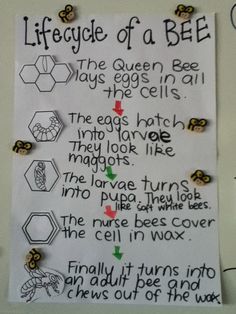 Lifecycle of a BEE
The Queen Bee
lays eggs in all
the cells.
The eggs hatch
into larvae
They look like
maggots.
The larvae turns
into pupa. They look
like soft white bees.
The nurse bees cover
the cell in wax.
Finally it turns into
an adult bee and
chews out of the wax.